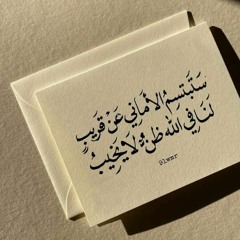 سَتَبتَسِمُ الأمَاني عَنْ قَريبٍ
لنَا في الله ظَنٌّ لَا يَخِيبُ